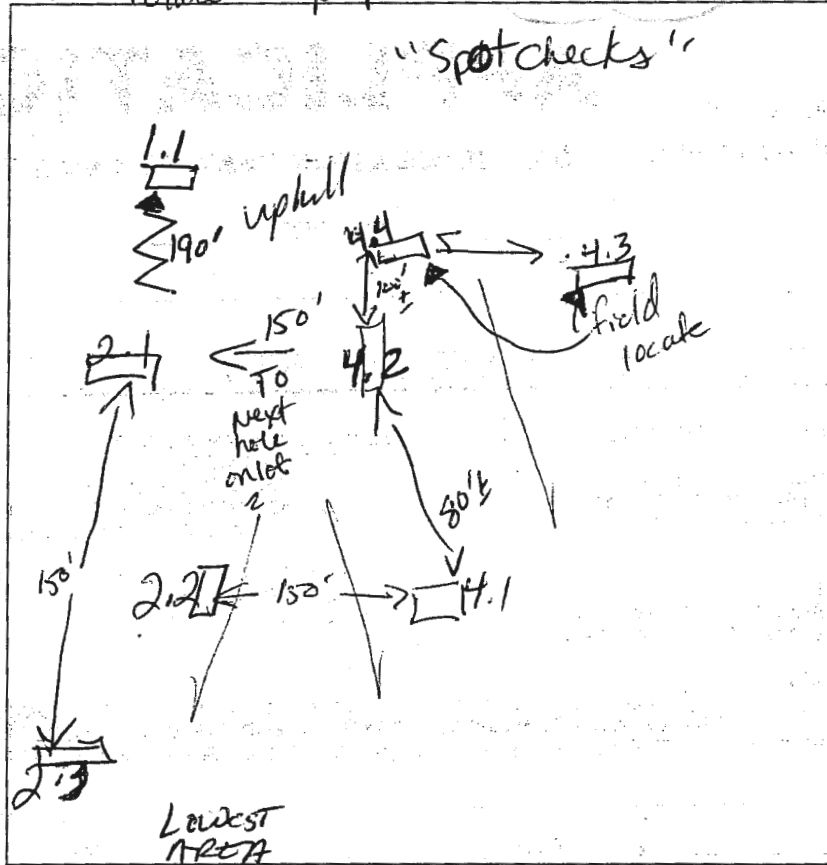 "Spot checks"
1.1
190' uphill
4.4
4.3
field
locate
100'±
150'
TO
next
hole
on lot
2
2.1
4.2
80'±
150'
2.2
150'
4.1
2.3
LOWEST
AREA